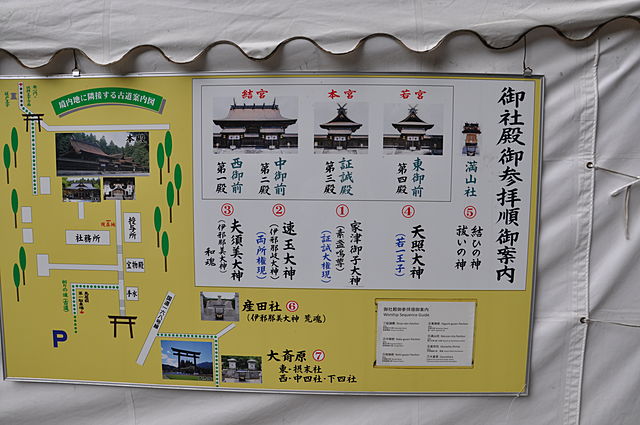 御社殿御参拝順御案内
満山社
⑤
結びの神
祓いの神
若宮
東御前
第四殿
④
天照大神
(若一王子)
本宮
証誠殿
第三殿
①
家津御子大神
(素盞嗚尊)
(証誠大権現)
結宮
中御前
第二殿
②
速玉大神
(伊邪那岐大神)
(両所権現)
西御前
第一殿
③
夫須美大神
(伊邪那美大神)
和魂
産田社 ⑥
(伊邪那美大神 荒魂)
大斎原 ⑦
東・摂末社
西・中四社・下四社
御社殿御参拝順御案内
Worship Sequence Guide
境内地に隣接する古道案内図
本宮
授与所
社務所
宝物殿
手水
国道一六八号
P